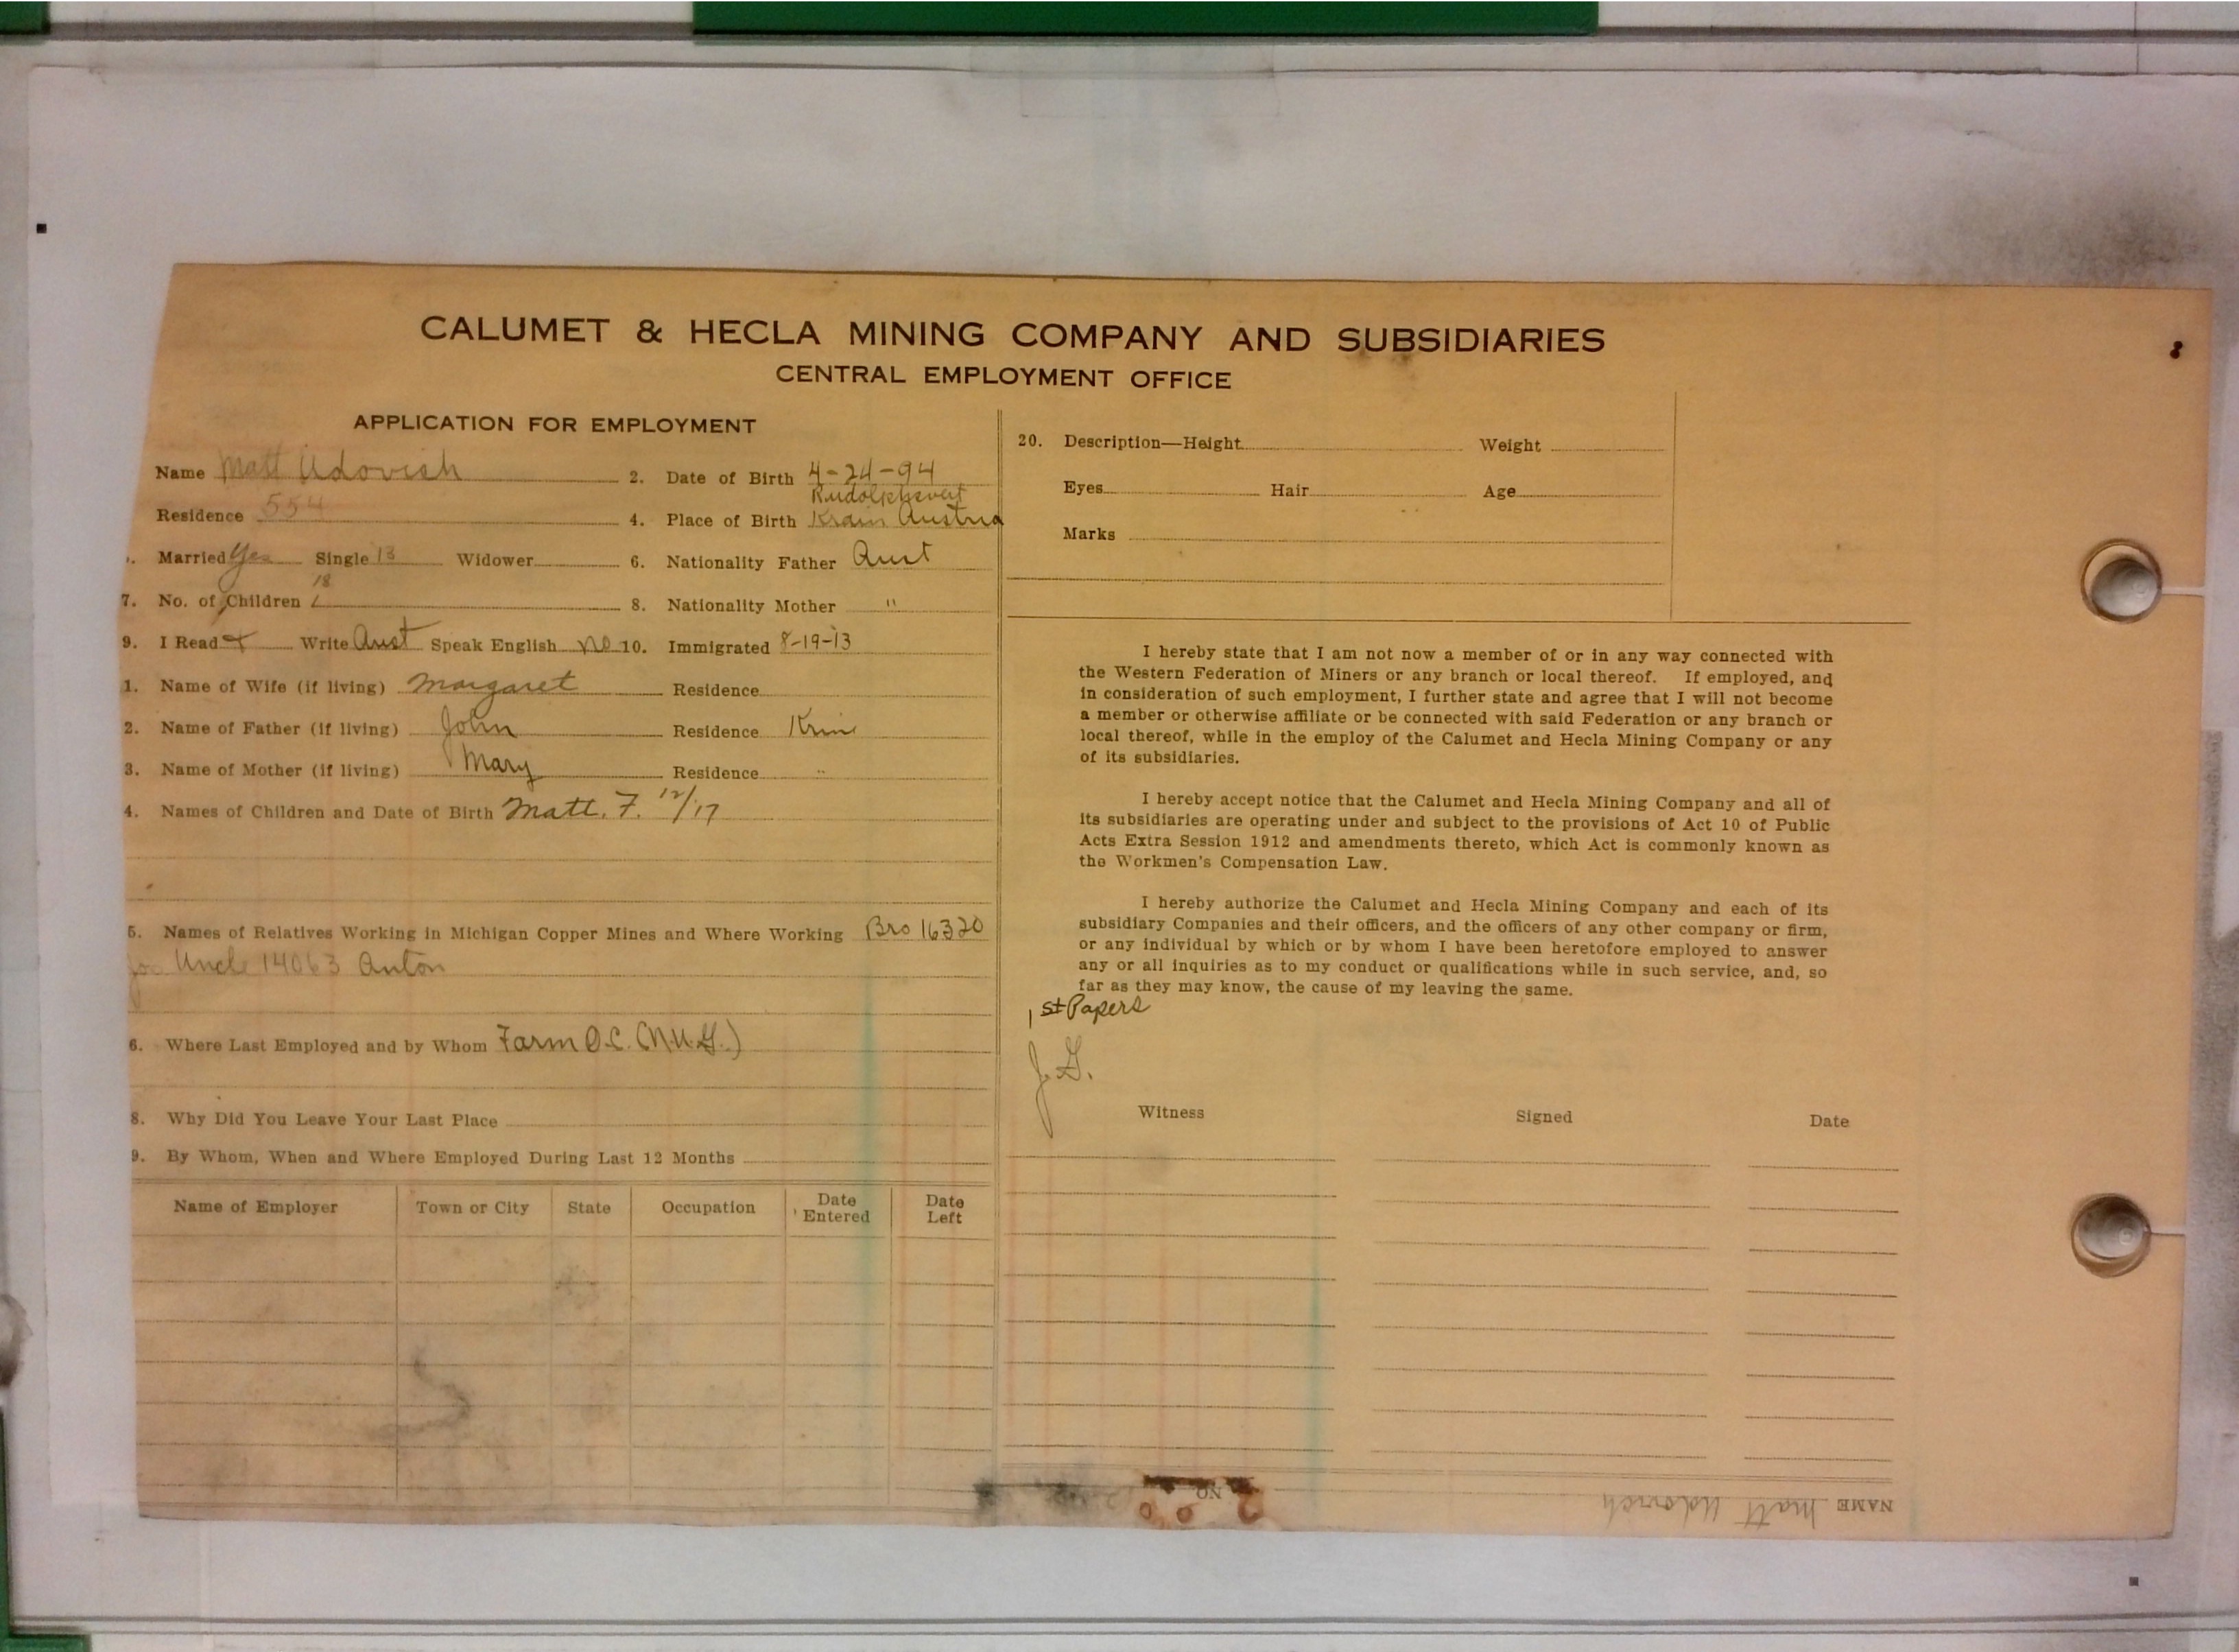 CALUMET & HECLA MINING COMPANY AND SUBSIDIARIES
CENTRAL EMPLOYMENT OFFICE
APPLICATION FOR EMPLOYMENT
Name Matt Udovich 2. Date of Birth 4-24-94
Residence 554 4. Place of Birth Krain Austria
Married Yes Single 13 Widower 6. Nationality Father Aust
18
7. No. of Children 1 8. Nationality Mother "
9. I Read & Write Aust Speak English no 10. Immigrated 8-19-13
1. Name of Wife (if living) Margaret Residence
2. Name of Father (if living) John Residence
3. Name of Mother (if living) Mary Residence "
4. Names of Children and Date of Birth Matt. F. 12/17
5. Names of Relatives Working in Michigan Copper Mines and Where Working Bro 16320
Joe Uncle 14063 Anton
6. Where Last Employed and by Whom Farm O.C.
8. Why Did You Leave Your Last Place
9. By Whom, When and Where Employed During Last 12 Months
Name of Employer Town or City State Occupation Date Entered Date Left
20. Description—Height Weight
Eyes Hair Age
Marks
I hereby state that I am not now a member of or in any way connected with
the Western Federation of Miners or any branch or local thereof. If employed, and
in consideration of such employment, I further state and agree that I will not become
a member or otherwise affiliate or be connected with said Federation or any branch or
local thereof, while in the employ of the Calumet and Hecla Mining Company or any
of its subsidiaries.
I hereby accept notice that the Calumet and Hecla Mining Company and all of
its subsidiaries are operating under and subject to the provisions of Act 10 of Public
Acts Extra Session 1912 and amendments thereto, which Act is commonly known as
the Workmen's Compensation Law.
I hereby authorize the Calumet and Hecla Mining Company and each of its
subsidiary Companies and their officers, and the officers of any other company or firm,
or any individual by which or by whom I have been heretofore employed to answer
any or all inquiries as to my conduct or qualifications while in such service, and, so
far as they may know, the cause of my leaving the same.
1st Papers
J. G.
Witness Signed Date
NAME Matt Udovich NO.